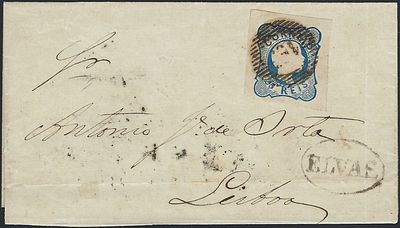 CORREIO
REIS
Snr
Antonio J. de Orta
ELVAS
Lisboa